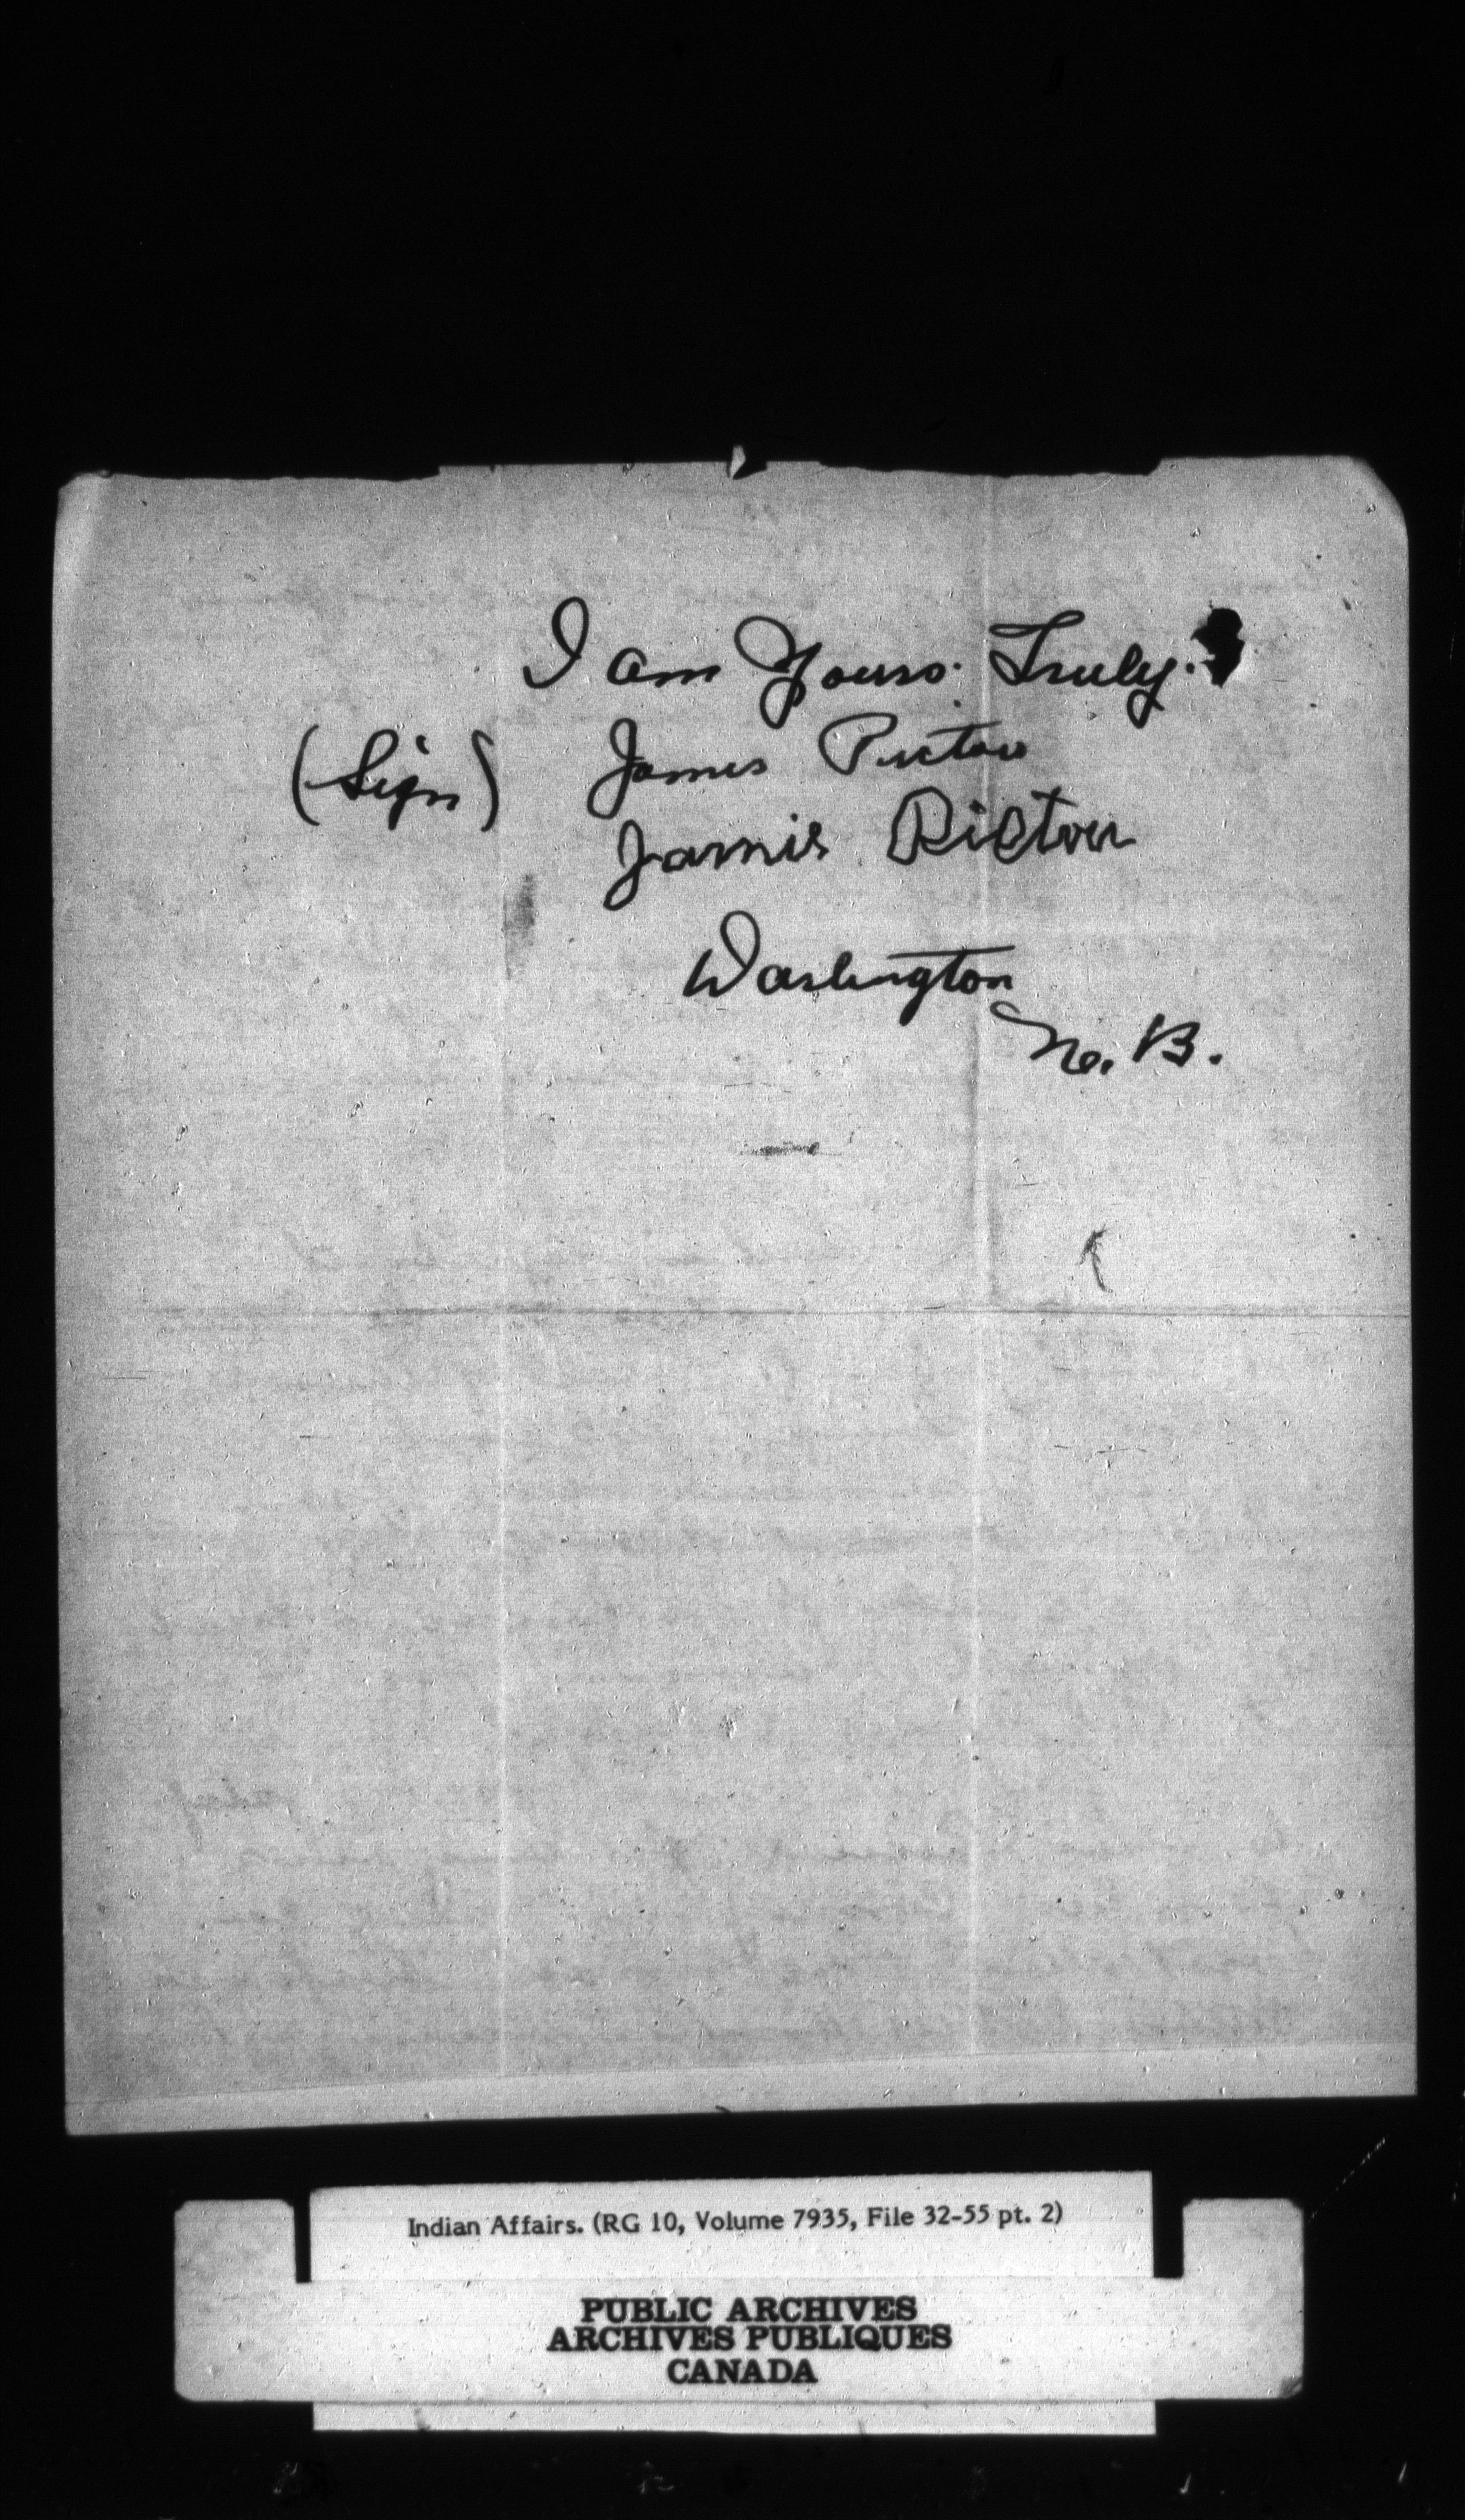 I am Yours Truly.
(Sign) James Pictou
James Pictou
Washington
No. B.
Indian Affairs. (RG 10, Volume 7935, File 32-55 pt. 2)
PUBLIC ARCHIVES
ARCHIVES PUBLIQUES
CANADA